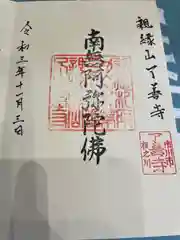 親縁山了善寺
南無阿弥陀佛
令和三年十一月三日
市川市
了善寺
相之川